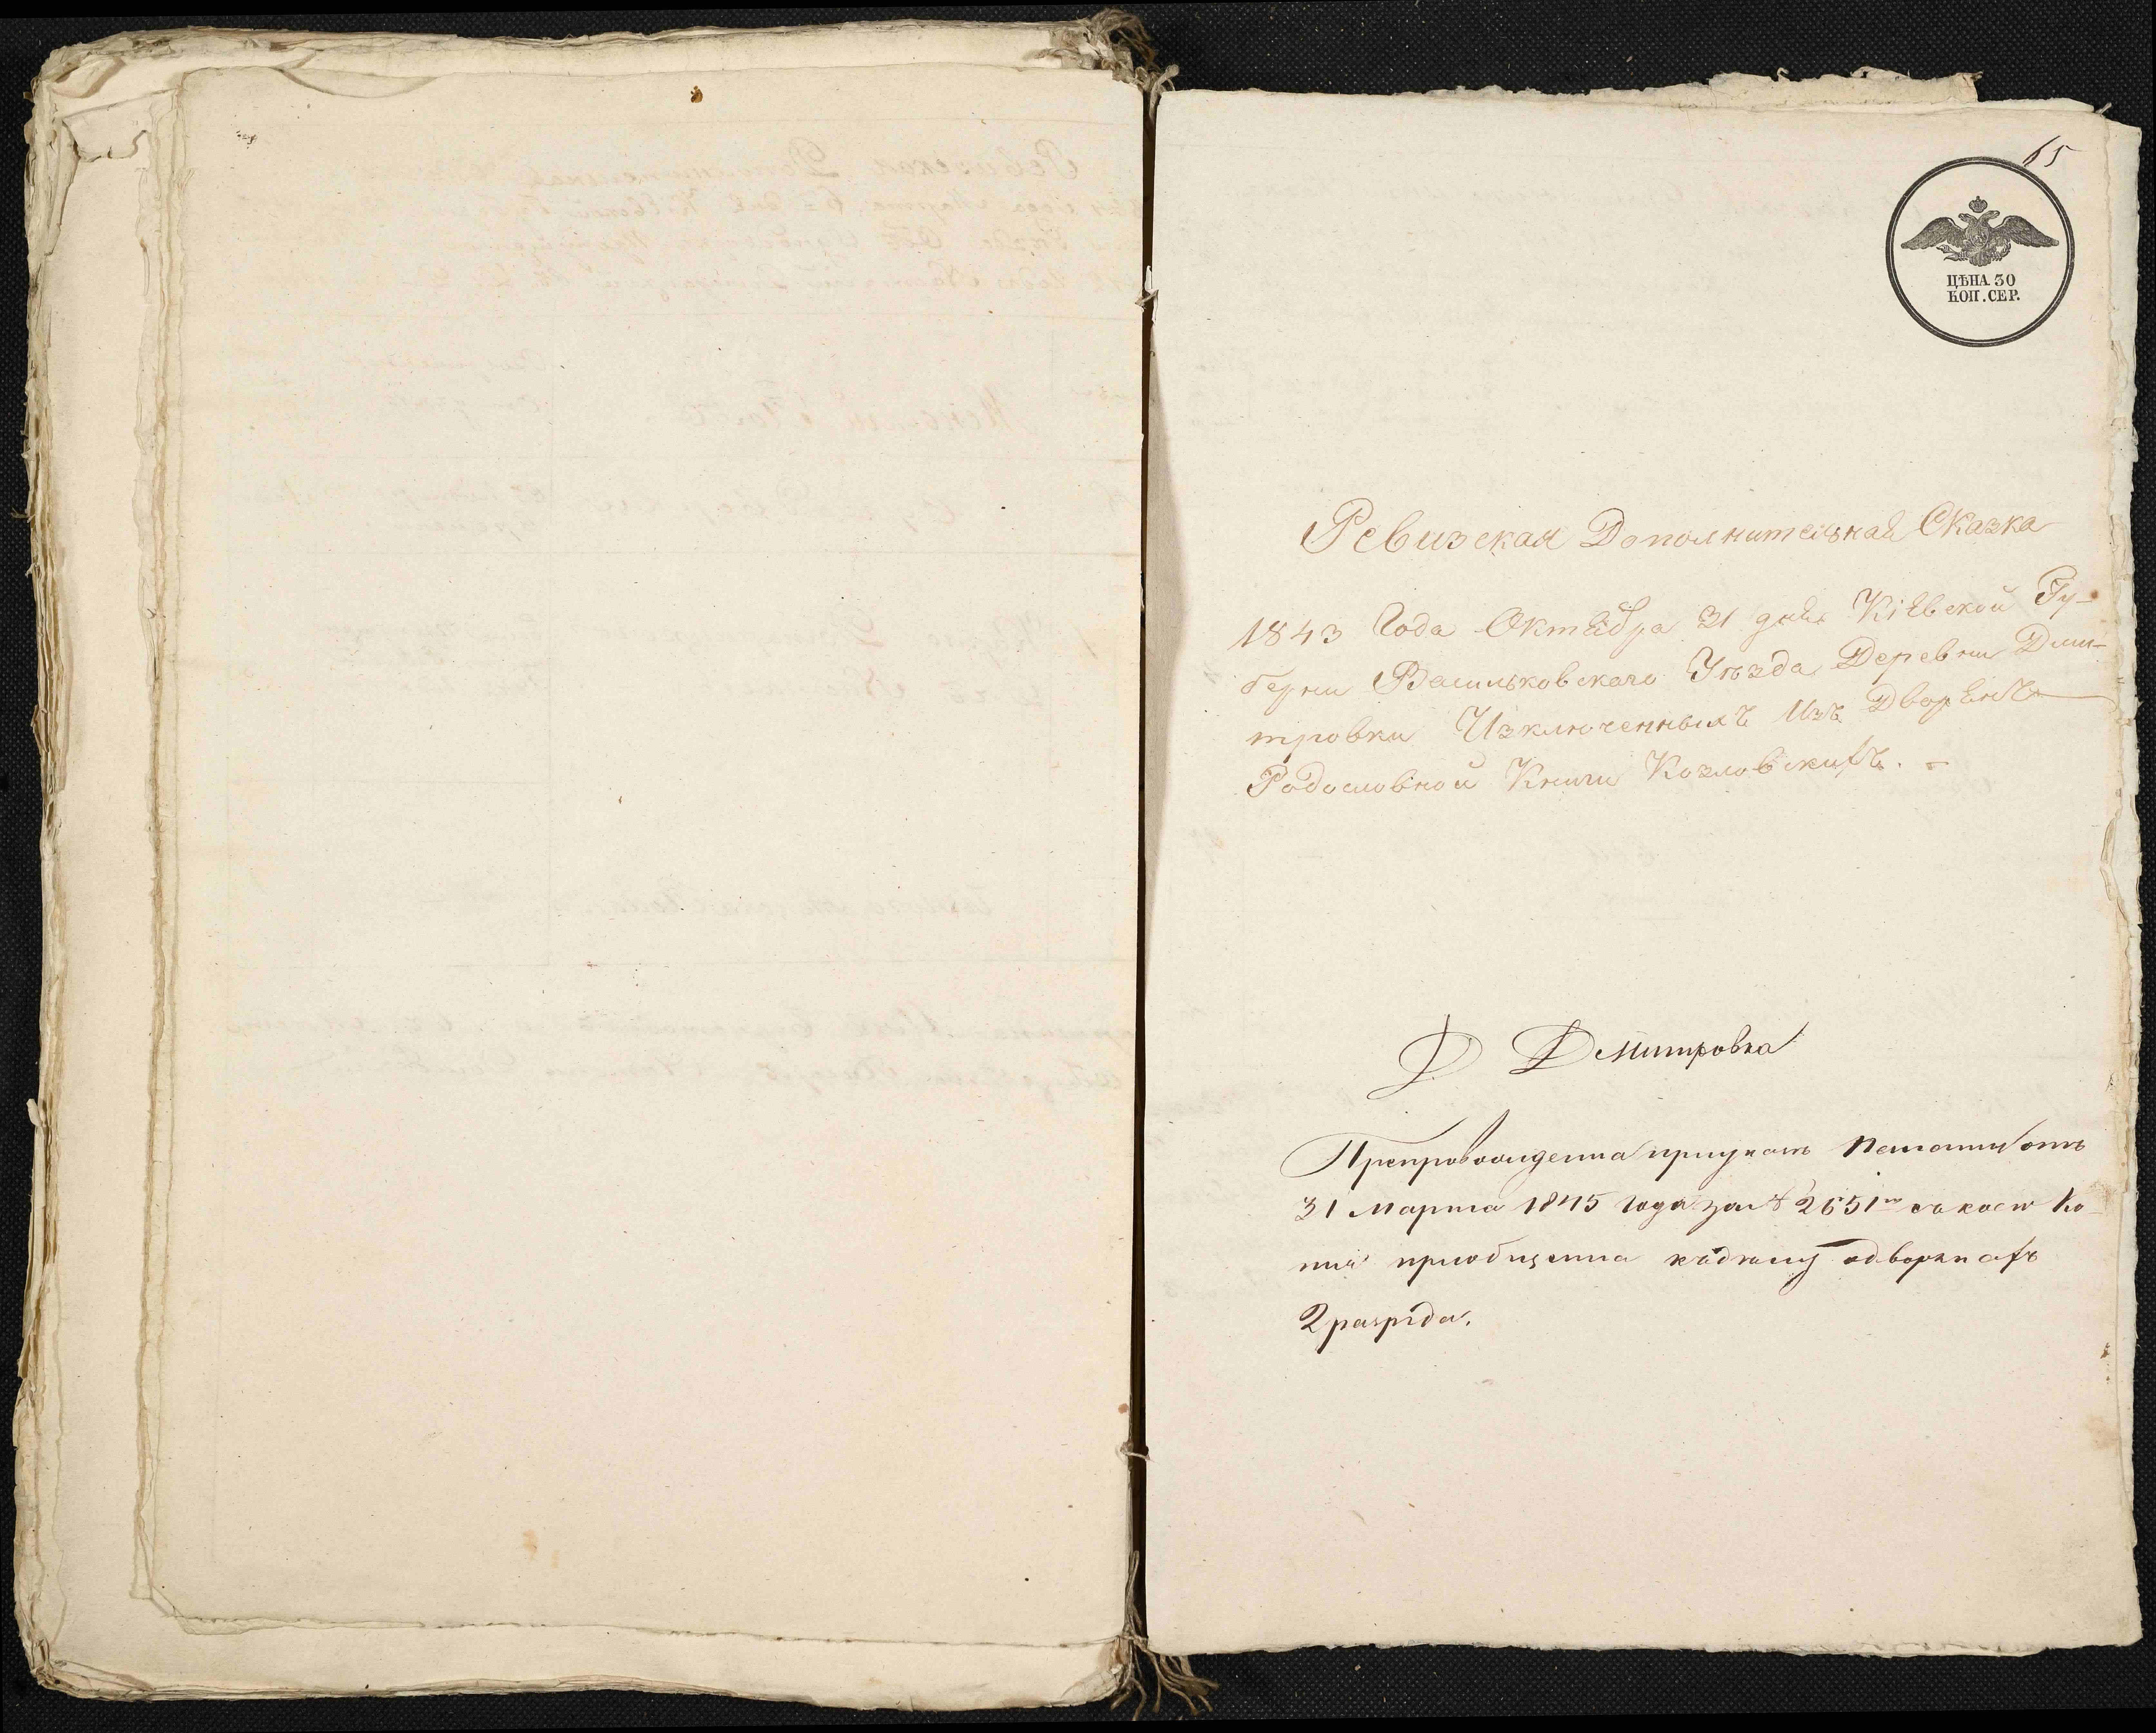 65
ЦѢНА 30
КОП. СЕР.
Ревизская Дополнительная Сказка
1843 Года Октября 31 дня Кіевской Гу-
берни Васильковского Уѣзда Деревни Дми-
тровки Изключенныхъ Изъ Дворянъ
Родословной Книги Козловскихъ. -
Д Дмитровка
Препровождена приуказѣ Палаты отъ
31 Марта 1845 года за № 2651 съ коего Ко-
пия приобщена къ делу о дворянахъ
2 разряда.